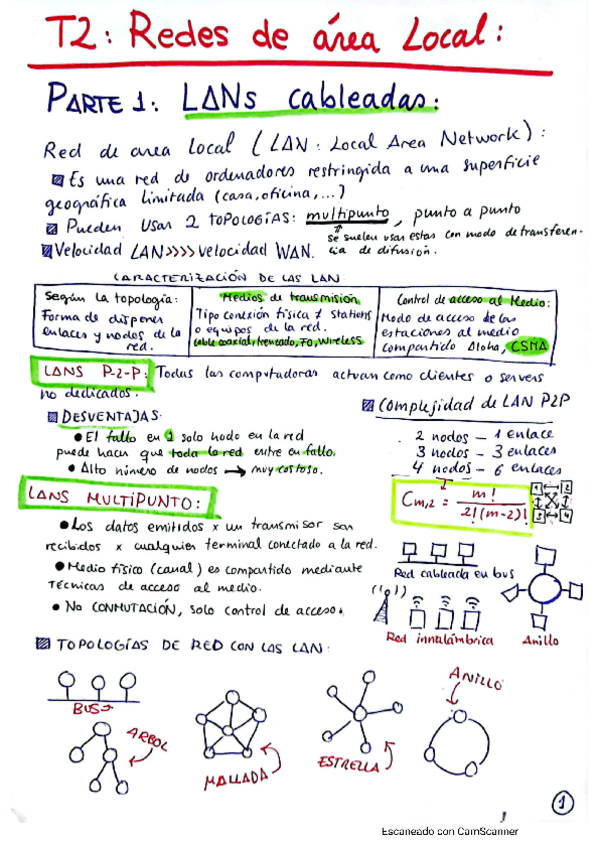 T2: Redes de área Local:
PARTE 1: LANs cableadas:
Red de area local (LAN: Local Area Network):
Es una red de ordenadores restringida a una superficie
geográfica limitada (casa, oficina, ...)
Pueden usar 2 TOPOLOGÍAS: multipunto, punto a punto
se suelen usar estas con modo de transferen-
cia de difusión.
Velocidad LAN >>>> velocidad WAN.
CARACTERIZACIÓN DE LAS LAN:
Según la topología:
Forma de disponer
enlaces y nodos de la
red.
Medios de transmisión
Tipo conexión física ≠ stations
o equipos de la red.
cable coaxial, trenzado, FO, wireless
Control de acceso al Medio:
Modo de acceso de las
estaciones al medio
compartido Aloha, CSMA
LANS P-2-P: Todas las computadoras actuan como clientes o servers
no dedicados.
DESVENTAJAS:
El fallo en 1 solo nodo en la red
puede hacer que toda la red entre en fallo.
Alto número de nodos → muy costoso.
Complejidad de LAN P2P
2 nodos - 1 enlace
3 nodos - 3 enlaces
4 nodos - 6 enlaces
Cm,2 = m! / 2!(m-2)!
1 2
3 4
LANS MULTIPUNTO:
Los datos emitidos x un transmisor son
recibidos x cualquier terminal conectado a la red.
Medio físico (canal) es compartido mediante
Técnicas de acceso al medio.
No CONMUTACIÓN, solo control de acceso.
Red cableada en bus
Red innalámbrica
Anillo
TOPOLOGÍAS DE RED CON LAS LAN:
BUS
ARBOL
MALLADA
ESTRELLA
ANILLO
1
Escaneado con CamScanner